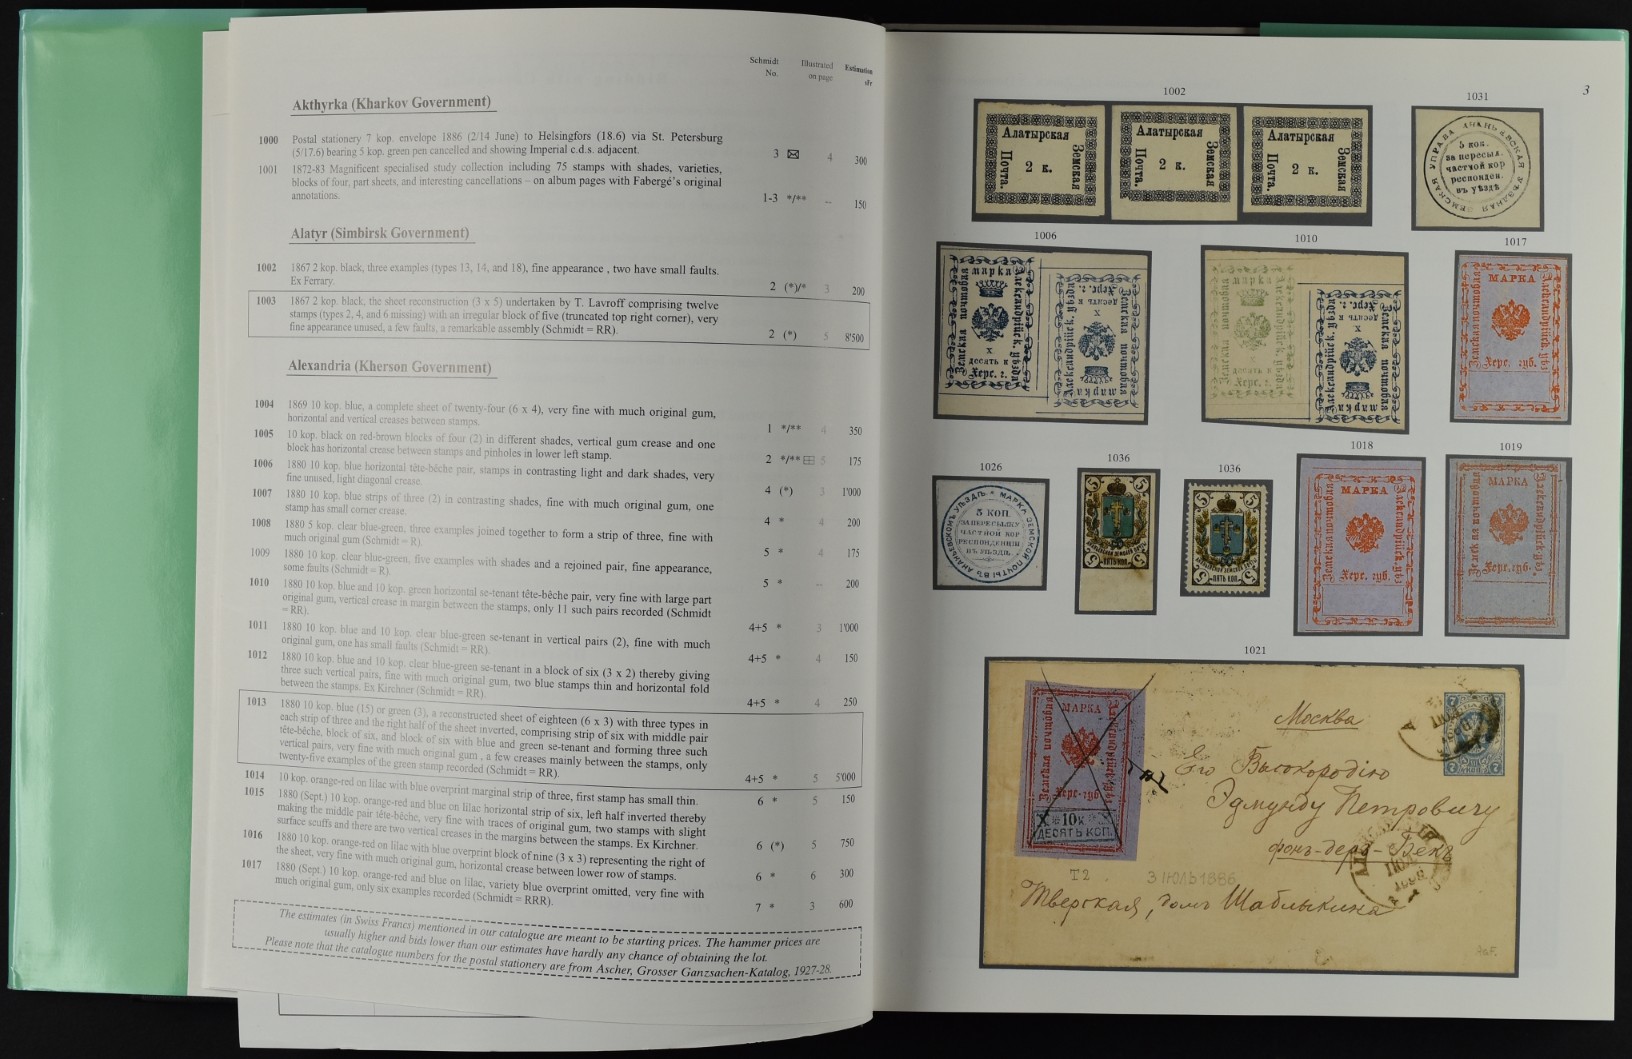 Schmidt No.
Illustrated on page
Estimation sFr
Akthyrka (Kharkov Government)
1000 Postal stationery 7 kop. envelope 1886 (2/14 June) to Helsingfors (18.6) via St. Petersburg
(5/17.6) bearing 5 kop. green pen cancelled and showing Imperial c.d.s. adjacent.
3 4 300
1001 1872-83 Magnificent specialised study collection including 75 stamps with shades, varieties,
blocks of four, part sheets, and interesting cancellations – on album pages with Fabergé's original
annotations.
1-3 */** -- 150
Alatyr (Simbirsk Government)
1002 1867 2 kop. black, three examples (types 13, 14, and 18), fine appearance , two have small faults.
Ex Ferrary.
2 (*)/* 3 200
1003 1867 2 kop. black, the sheet reconstruction (3 x 5) undertaken by T. Lavroff comprising twelve
stamps (types 2, 4, and 6 missing) with an irregular block of five (truncated top right corner), very
fine appearance unused, a few faults, a remarkable assembly (Schmidt = RR).
2 (*) 5 8'500
Alexandria (Kherson Government)
1004 1869 10 kop. blue, a complete sheet of twenty-four (6 x 4), very fine with much original gum,
horizontal and vertical creases between stamps.
1 */** 4 350
1005 10 kop. black on red-brown blocks of four (2) in different shades, vertical gum crease and one
block has horizontal crease between stamps and pinholes in lower left stamp.
2 */** 5 175
1006 1880 10 kop. blue horizontal tête-bêche pair, stamps in contrasting light and dark shades, very
fine unused, light diagonal crease.
4 (*) 3 1'000
1007 1880 10 kop. blue strips of three (2) in contrasting shades, fine with much original gum, one
stamp has small corner crease.
4 * 4 200
1008 1880 5 kop. clear blue-green, three examples joined together to form a strip of three, fine with
much original gum (Schmidt = R).
5 * 4 175
1009 1880 10 kop. clear blue-green, five examples with shades and a rejoined pair, fine appearance,
some faults (Schmidt = R).
5 * -- 200
1010 1880 10 kop. blue and 10 kop. green horizontal se-tenant tête-bêche pair, very fine with large part
original gum, vertical crease in margin between the stamps, only 11 such pairs recorded (Schmidt
= RR).
4+5 * 3 1'000
1011 1880 10 kop. blue and 10 kop. clear blue-green se-tenant in vertical pairs (2), fine with much
original gum, one has small faults (Schmidt = RR).
4+5 * 4 150
1012 1880 10 kop. blue and 10 kop. clear blue-green se-tenant in a block of six (3 x 2) thereby giving
three such vertical pairs, fine with much original gum, two blue stamps thin and horizontal fold
between the stamps. Ex Kirchner (Schmidt = RR).
4+5 * 4 250
1013 1880 10 kop. blue (15) or green (3), a reconstructed sheet of eighteen (6 x 3) with three types in
each strip of three and the right half of the sheet inverted, comprising strip of six with middle pair
tête-bêche, block of six, and block of six with blue and green se-tenant and forming three such
vertical pairs, very fine with much original gum , a few creases mainly between the stamps, only
twenty-five examples of the green stamp recorded (Schmidt = RR).
4+5 * 5 5'000
1014 10 kop. orange-red on lilac with blue overprint marginal strip of three, first stamp has small thin.
6 * 5 150
1015 1880 (Sept.) 10 kop. orange-red and blue on lilac horizontal strip of six, left half inverted thereby
making the middle pair tête-bêche, very fine with traces of original gum, two stamps with slight
surface scuffs and there are two vertical creases in the margins between the stamps. Ex Kirchner.
6 (*) 5 750
1016 1880 10 kop. orange-red on lilac with blue overprint block of nine (3 x 3) representing the right of
the sheet, very fine with much original gum, horizontal crease between lower row of stamps.
6 * 6 300
1017 1880 (Sept.) 10 kop. orange-red and blue on lilac, variety blue overprint omitted, very fine with
much original gum, only six examples recorded (Schmidt = RRR).
7 * 3 600
The estimates (in Swiss Francs) mentioned in our catalogue are meant to be starting prices. The hammer prices are
usually higher and bids lower than our estimates have hardly any chance of obtaining the lot.
Please note that the catalogue numbers for the postal stationery are from Ascher, Grosser Ganzsachen-Katalog, 1927-28.
3
1002
Алатырская
2 к.
Почта.
Земская
Алатырская
2 к.
Почта.
Земская
Алатырская
2 к.
Почта.
Земская
1031
5 коп.
за пересыл.
частной кор
респонден.
въ уѣздѣ
1006
марка
Земская почтовая
Александрійск. уѣзда
десять к
Херс. г.
1010
марка
Херс. г.
1017
МАРКА
Земская почтовая
Херс. губ.
1026
5 КОП
ЗА ПЕРЕСЫЛКУ
ЧАСТНОЙ КОР
РЕСПОНДЕНЦІИ
ВЪ УѢЗДѢ
1036
5 5
ПЯТЬ КОП.
1036
5 5
ПЯТЬ КОП.
1018
МАРКА
Земская почтовая
Херс. губ.
1019
МАРКА
Херс. губ.
1021
МАРКА
Земская почтовая
Херс. губ
10к
ДЕСЯТЬ КОП.
Москва
Его Высокородію
Эдмунду Петровичу
фонъ-деръ-Бекъ
Т2
3 ІЮЛЬ 1886
Тверская, домъ Шаблыкина